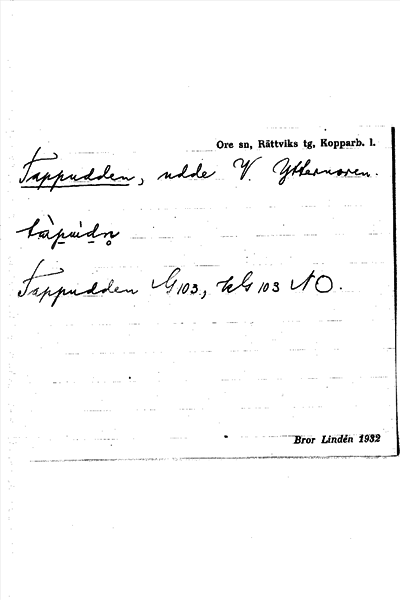 Ore sn, Rättviks tg, Kopparb. l.
Tappudden, udde V. Ytternoren.
Tappudden G103, kG 103 NO.
Bror Lindén 1932